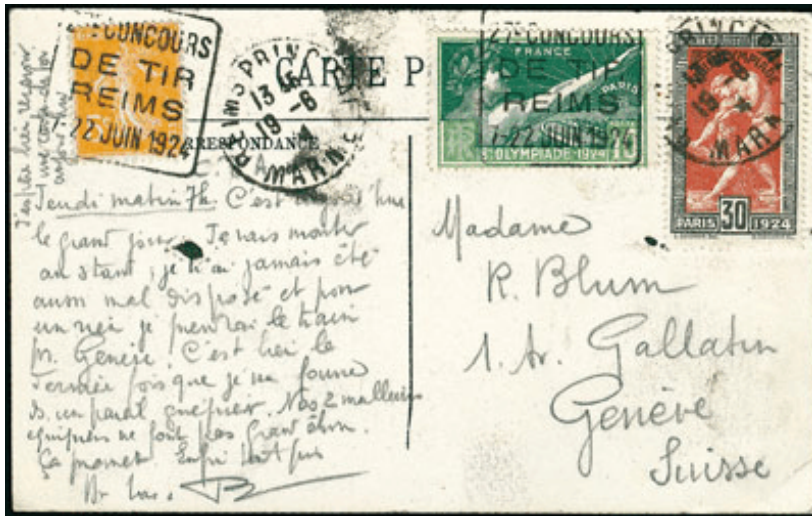 CONCOURS
DE TIR
REIMS
7-22 JUIN 1924
REIMS PRIN
13
19 -6
MARNE
CARTE P
RRESPONDANCE
27e CONCOURS
DE TIR
REIMS
7-22 JUIN 1924
FRANCE
PARIS
8e OLYMPIADE 1924
10
PRINCIPAL
19 -6
MARN
PARIS 30 1924
J'espère hier recevoir
une
Jeudi matin 7h. C'est
le grand jour. Je vais monter
au stand, je n'ai jamais été
aussi mal disposé et pour
un rien je prendrai le train
pr. Genève. C'est bien la
dernière fois que je me fourre
ds. un pareil guêpier. Nos 2 meilleurs
équipiers ne font pas grand
Ça promet. Enfin
Madame
R. Blum
1. Av. Gallatin
Genève
Suisse